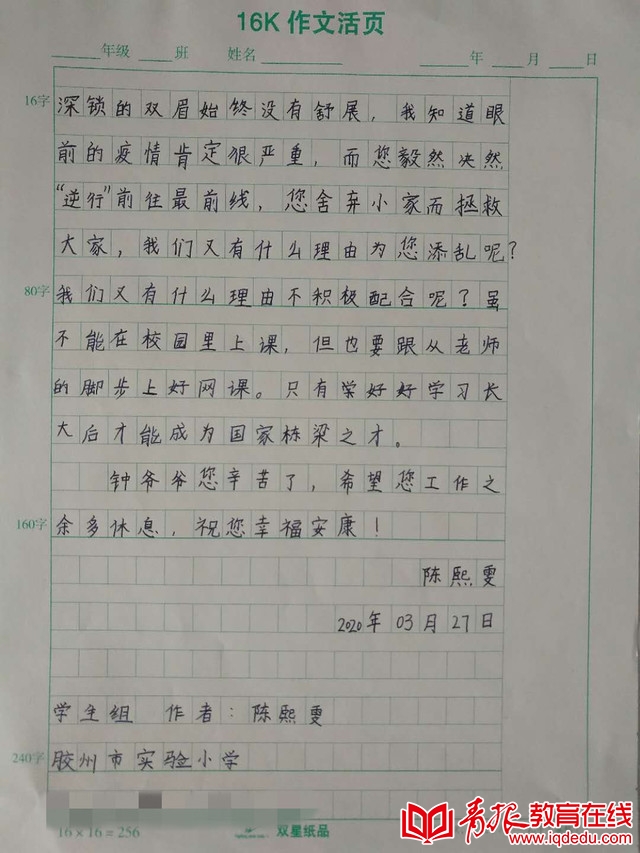 16K 作文活页
年级 班 姓名 年 月 日
16字
深锁的双眉始终没有舒展，我知道眼
前的疫情肯定很严重，而您毅然决然
“逆行”前往最前线，您舍弃小家而拯救
大家，我们又有什么理由为您添乱呢？
80字
我们又有什么理由不积极配合呢？虽
不能在校园里上课，但也要跟从老师
的脚步上好网课。只有学好好学习长
大后才能成为国家栋梁之才。
钟爷爷您辛苦了，希望您工作之
160字
余多休息，祝您幸福安康！
陈熙雯
2020年03月27日
学生组 作者：陈熙雯
240字
胶州市实验小学
16×16=256
双星纸品
青报教育在线
www.iqdedu.com